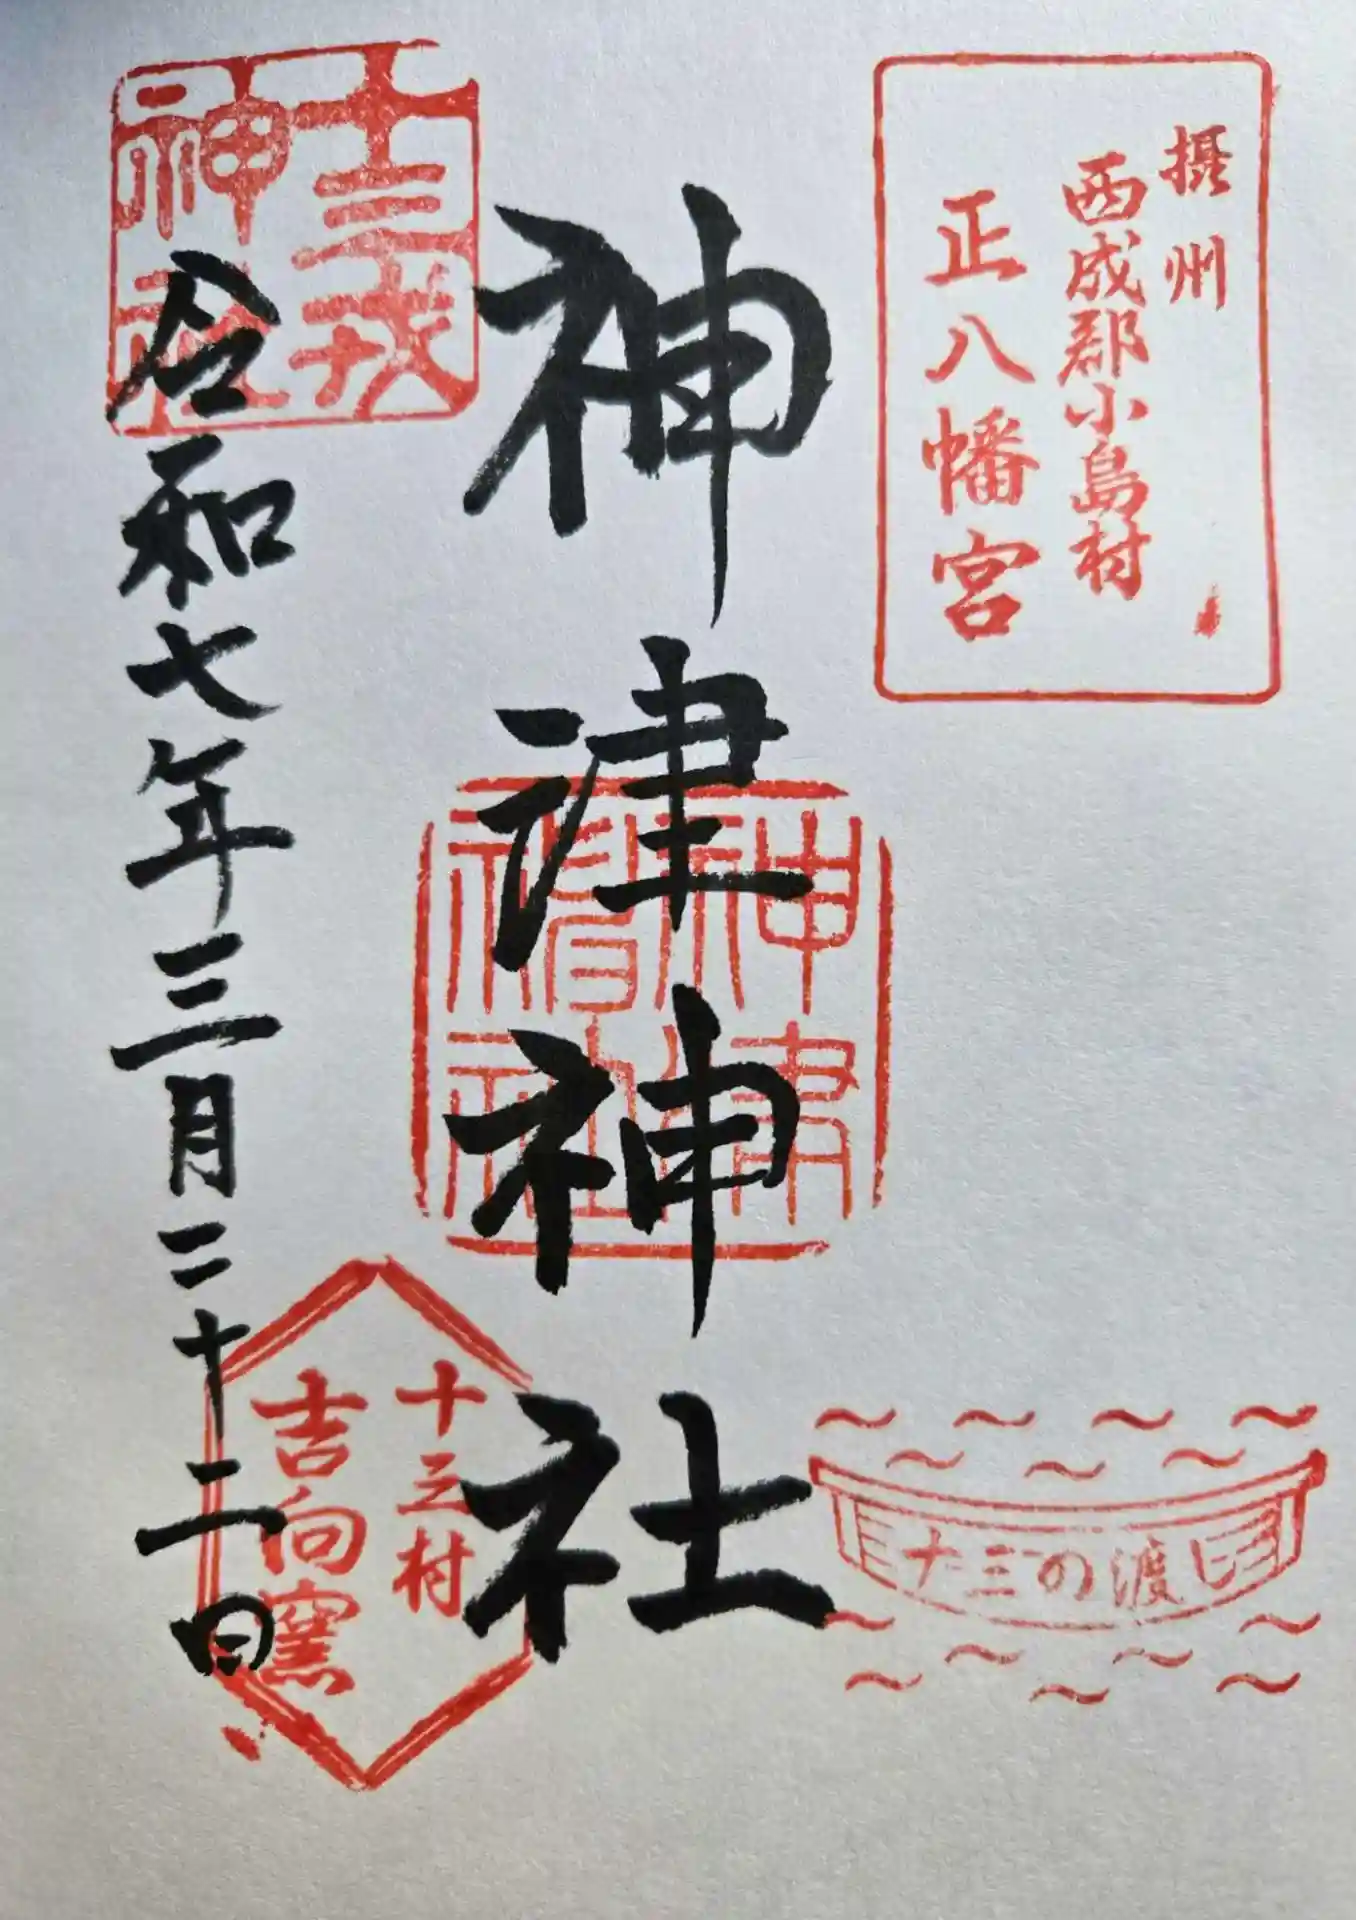 摂州
西成郡小島村
正八幡宮
神津神社
神津神社
十三戎
神社
令和七年三月二十二日
十三村
吉向窯
十三の渡し